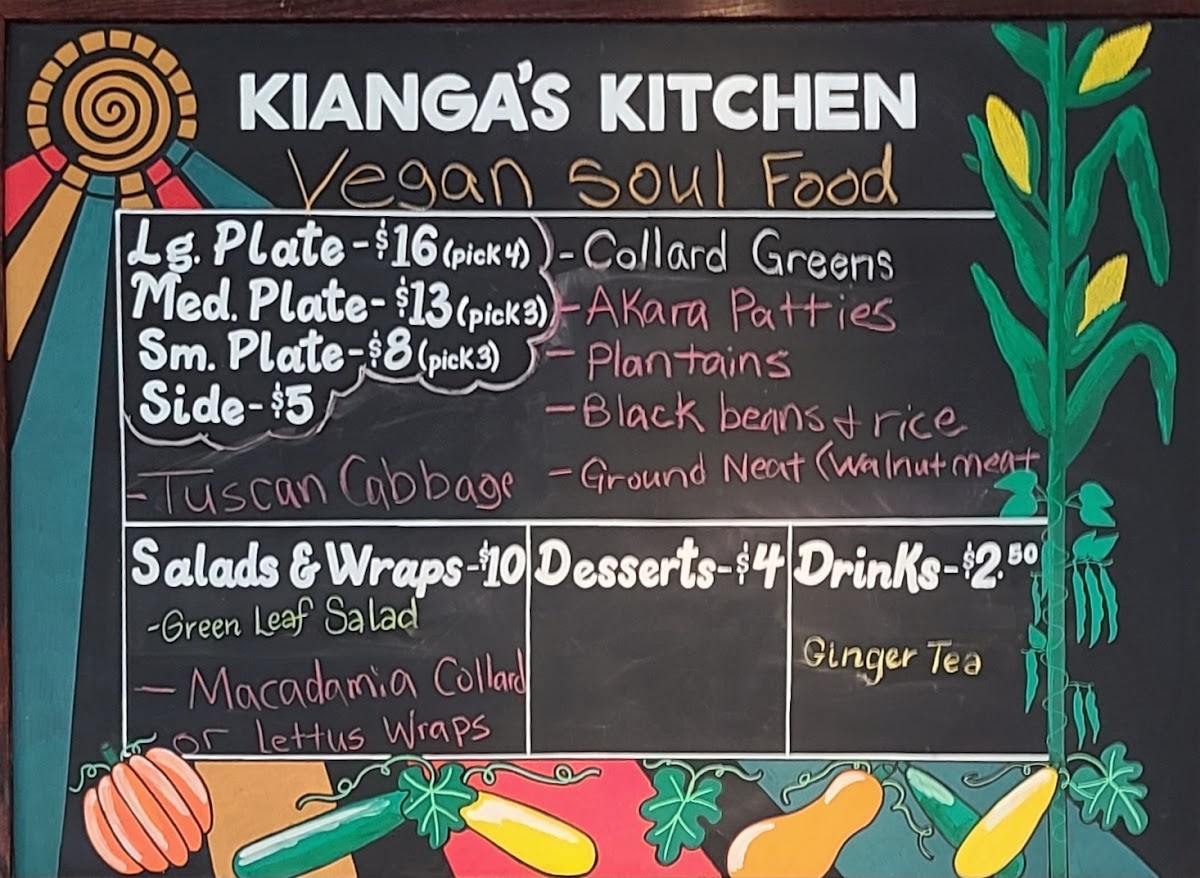 KIANGA'S KITCHEN
Vegan Soul Food
Lg. Plate - $16 (pick 4)
Med. Plate - $13 (pick 3)
Sm. Plate - $8 (pick 3)
Side - $5
- Tuscan Cabbage
- Collard Greens
- Akara Patties
- Plantains
- Black beans & rice
- Ground Neat (Walnut meat
Salads & Wraps - $10
- Green Leaf Salad
- Macadamia Collard
or Lettus Wraps
Desserts - $4
Drinks - $2.50
Ginger Tea